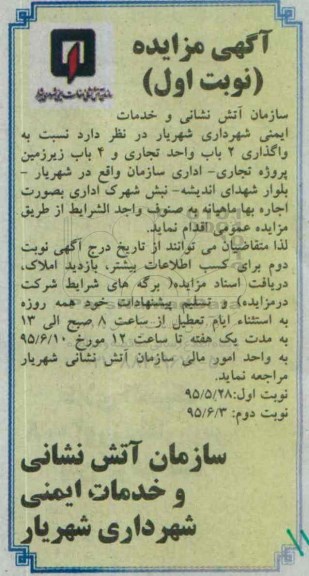 آگهی مزایده
(نوبت اول)
سازمان آتش نشانی و خدمات
ایمنی شهرداری شهریار در نظر دارد نسبت به
واگذاری ۲ باب واحد تجاری و ۴ باب زیرزمین
پروژه تجاری- اداری سازمان واقع در شهریار -
بلوار شهدای اندیشه- نبش شهرک اداری بصورت
اجاره بها ماهیانه به صنوف واجد الشرایط از طریق
مزایده عمومی اقدام نماید.
لذا متقاضیان می توانند از تاریخ درج آگهی نوبت
دوم برای کسب اطلاعات بیشتر، بازدید املاک،
دریافت اسناد مزایده( برگه های شرایط شرکت
درمزایده) و تنظیم پیشنهادات خود همه روزه
به استثناء ایام تعطیل از ساعت ۸ صبح الی ۱۳
به مدت یک هفته تا ساعت ۱۲ مورخ ۹۵/۶/۱۰
به واحد امور مالی سازمان آتش نشانی شهریار
مراجعه نماید.
نوبت اول:۹۵/۵/۲۸
نوبت دوم: ۹۵/۶/۳
سازمان آتش نشانی
و خدمات ایمنی
شهرداری شهریار